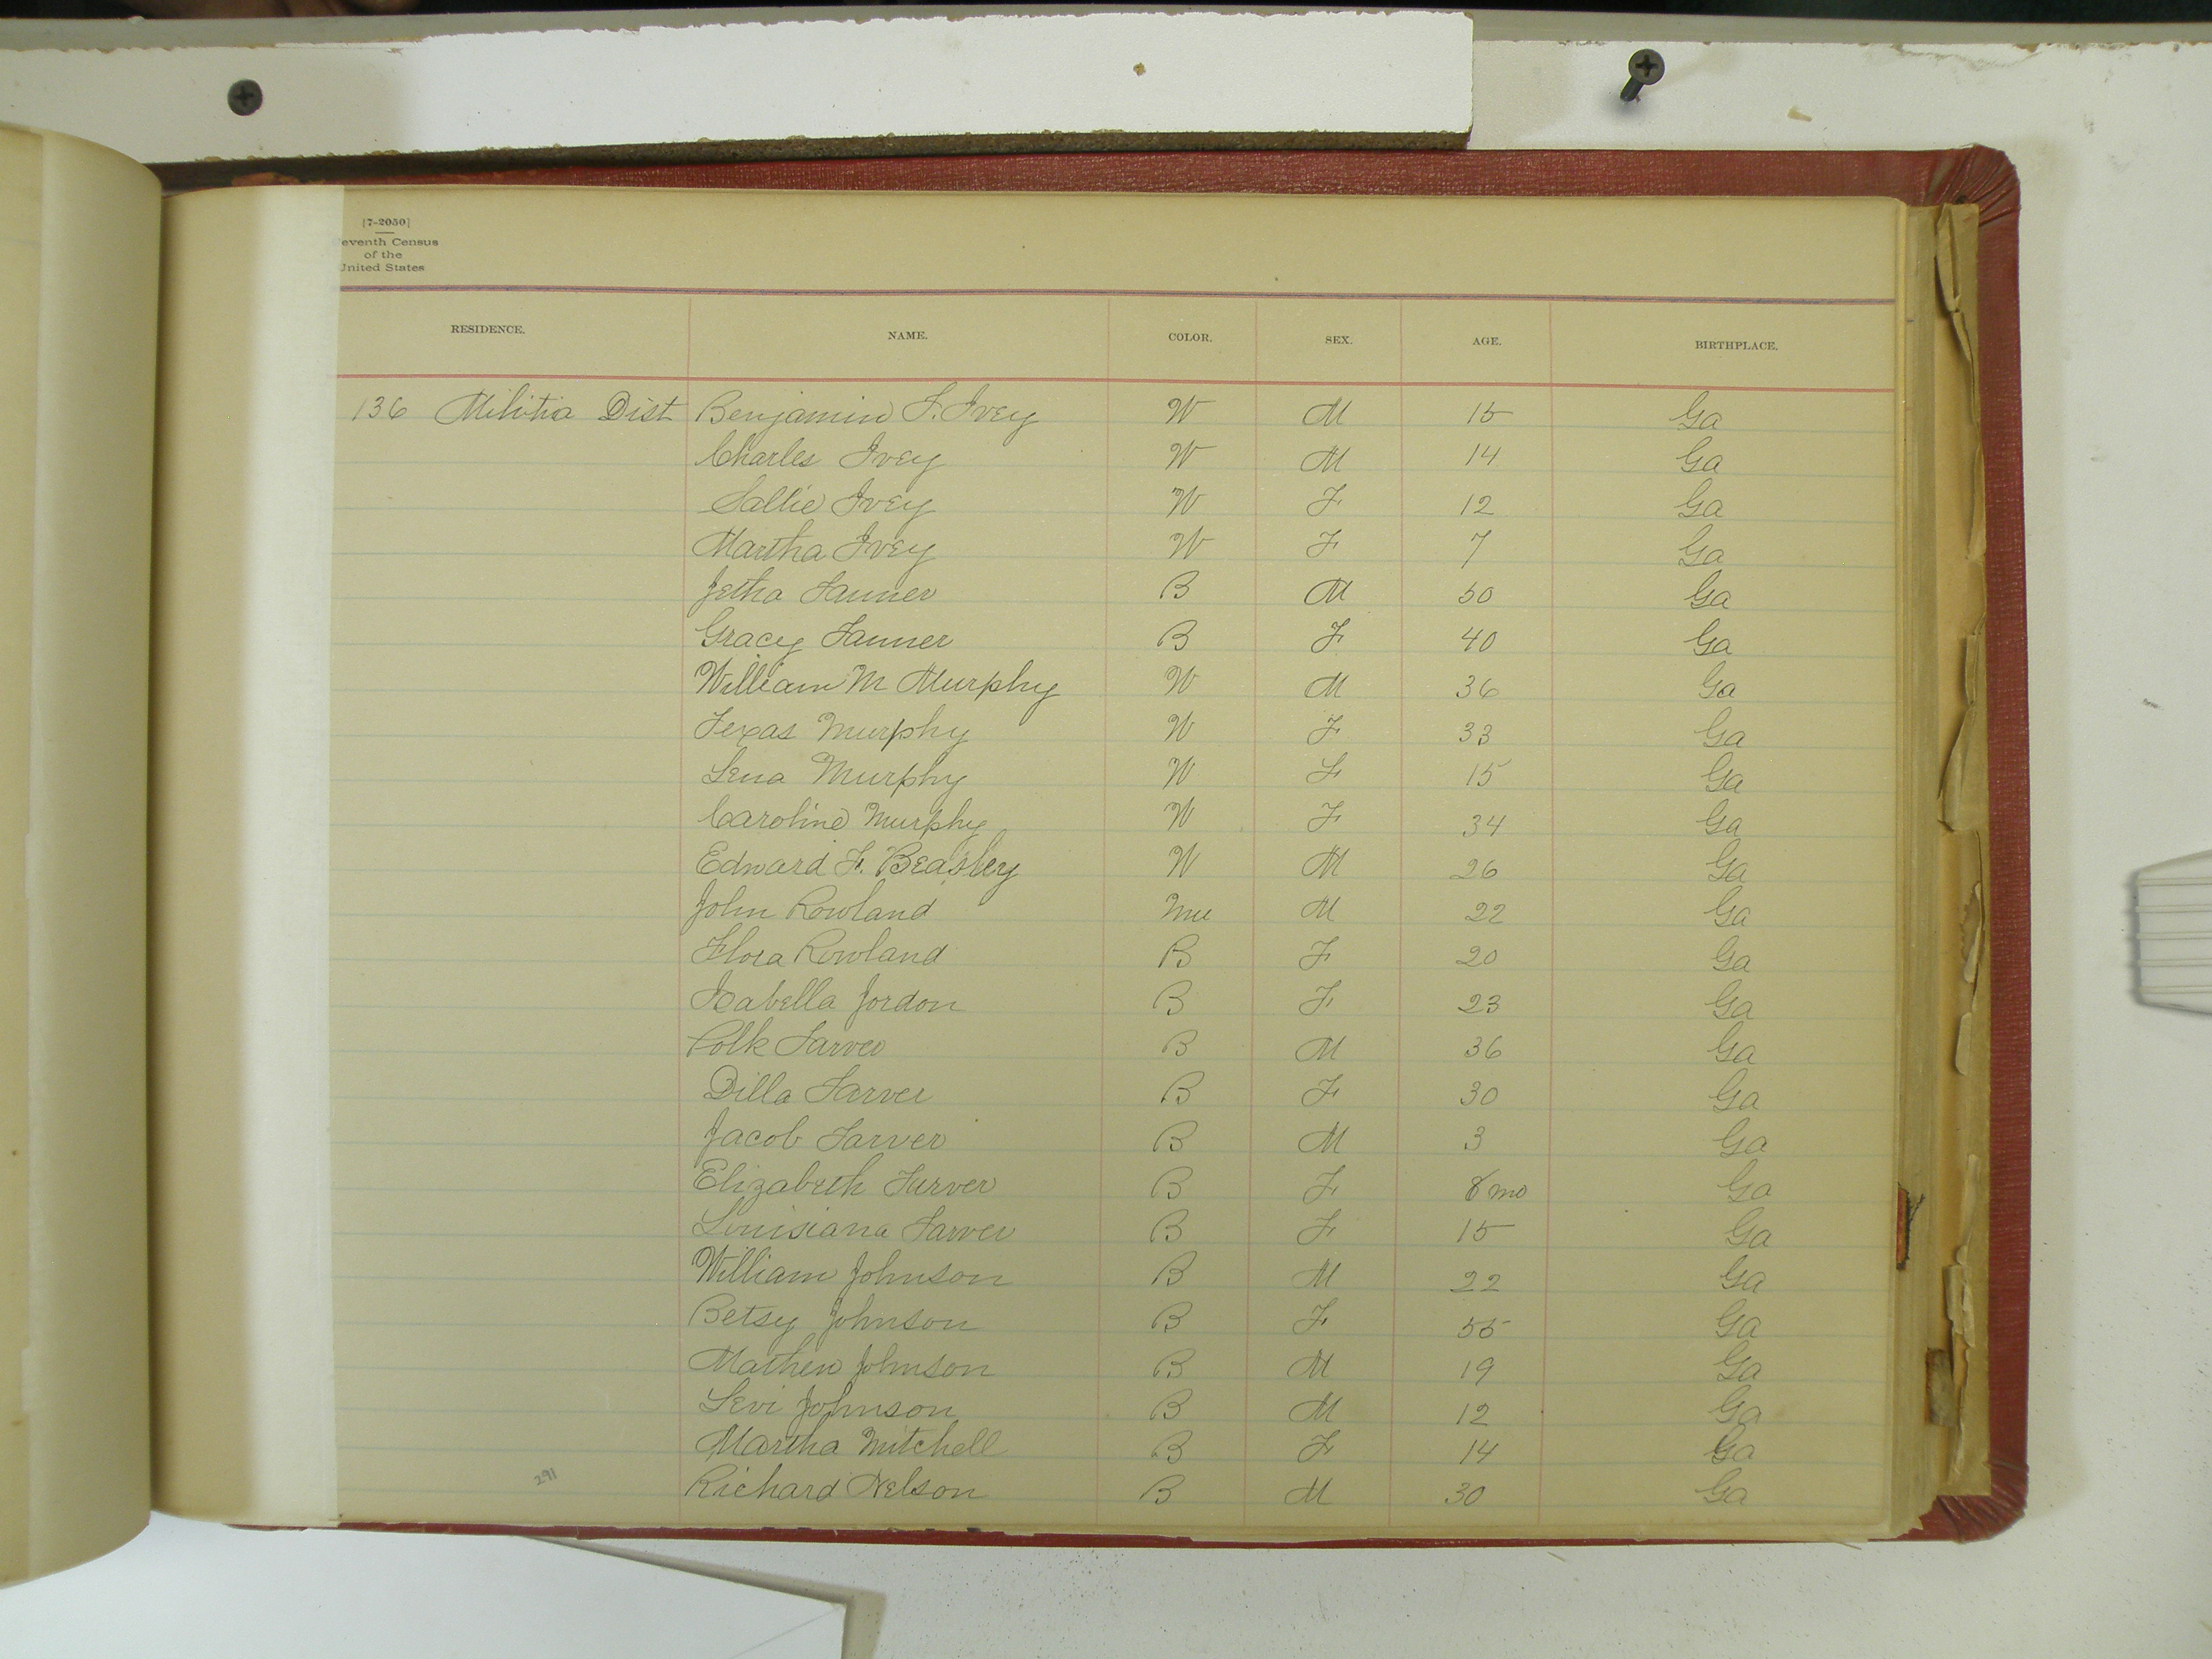 [7-2050]
eventh Census
of the
United States
RESIDENCE. NAME. COLOR. SEX. AGE. BIRTHPLACE.
136 Militia Dist Benjamin F. Ivey W M 15 Ga
Charles Ivey W M 14 Ga
Sallie Ivey W F 12 Ga
Martha Ivey W F 7 Ga
Jetha Tanner B M 50 Ga
Gracey Tanner B F 40 Ga
William M Murphy W M 36 Ga
Texas Murphy W F 33 Ga
Lena Murphy W F 15 Ga
Caroline Murphy W F 34 Ga
Edward F. Beasley W M 26 Ga
John Rowland Mu M 22 Ga
Flora Rowland B F 20 Ga
Isabella Jordon B F 23 Ga
Polk Tarver B M 36 Ga
Dilla Tarver B F 30 Ga
Jacob Tarver B M 3 Ga
Elizabeth Turver B F 8 mo Ga
Louisiana Tarver B F 15 Ga
William Johnson B M 22 Ga
Betsy Johnson B F 55 Ga
Mathew Johnson B M 19 Ga
Levi Johnson B M 12 Ga
Martha Mitchell B F 14 Ga
Richard Nelson B M 30 Ga
291